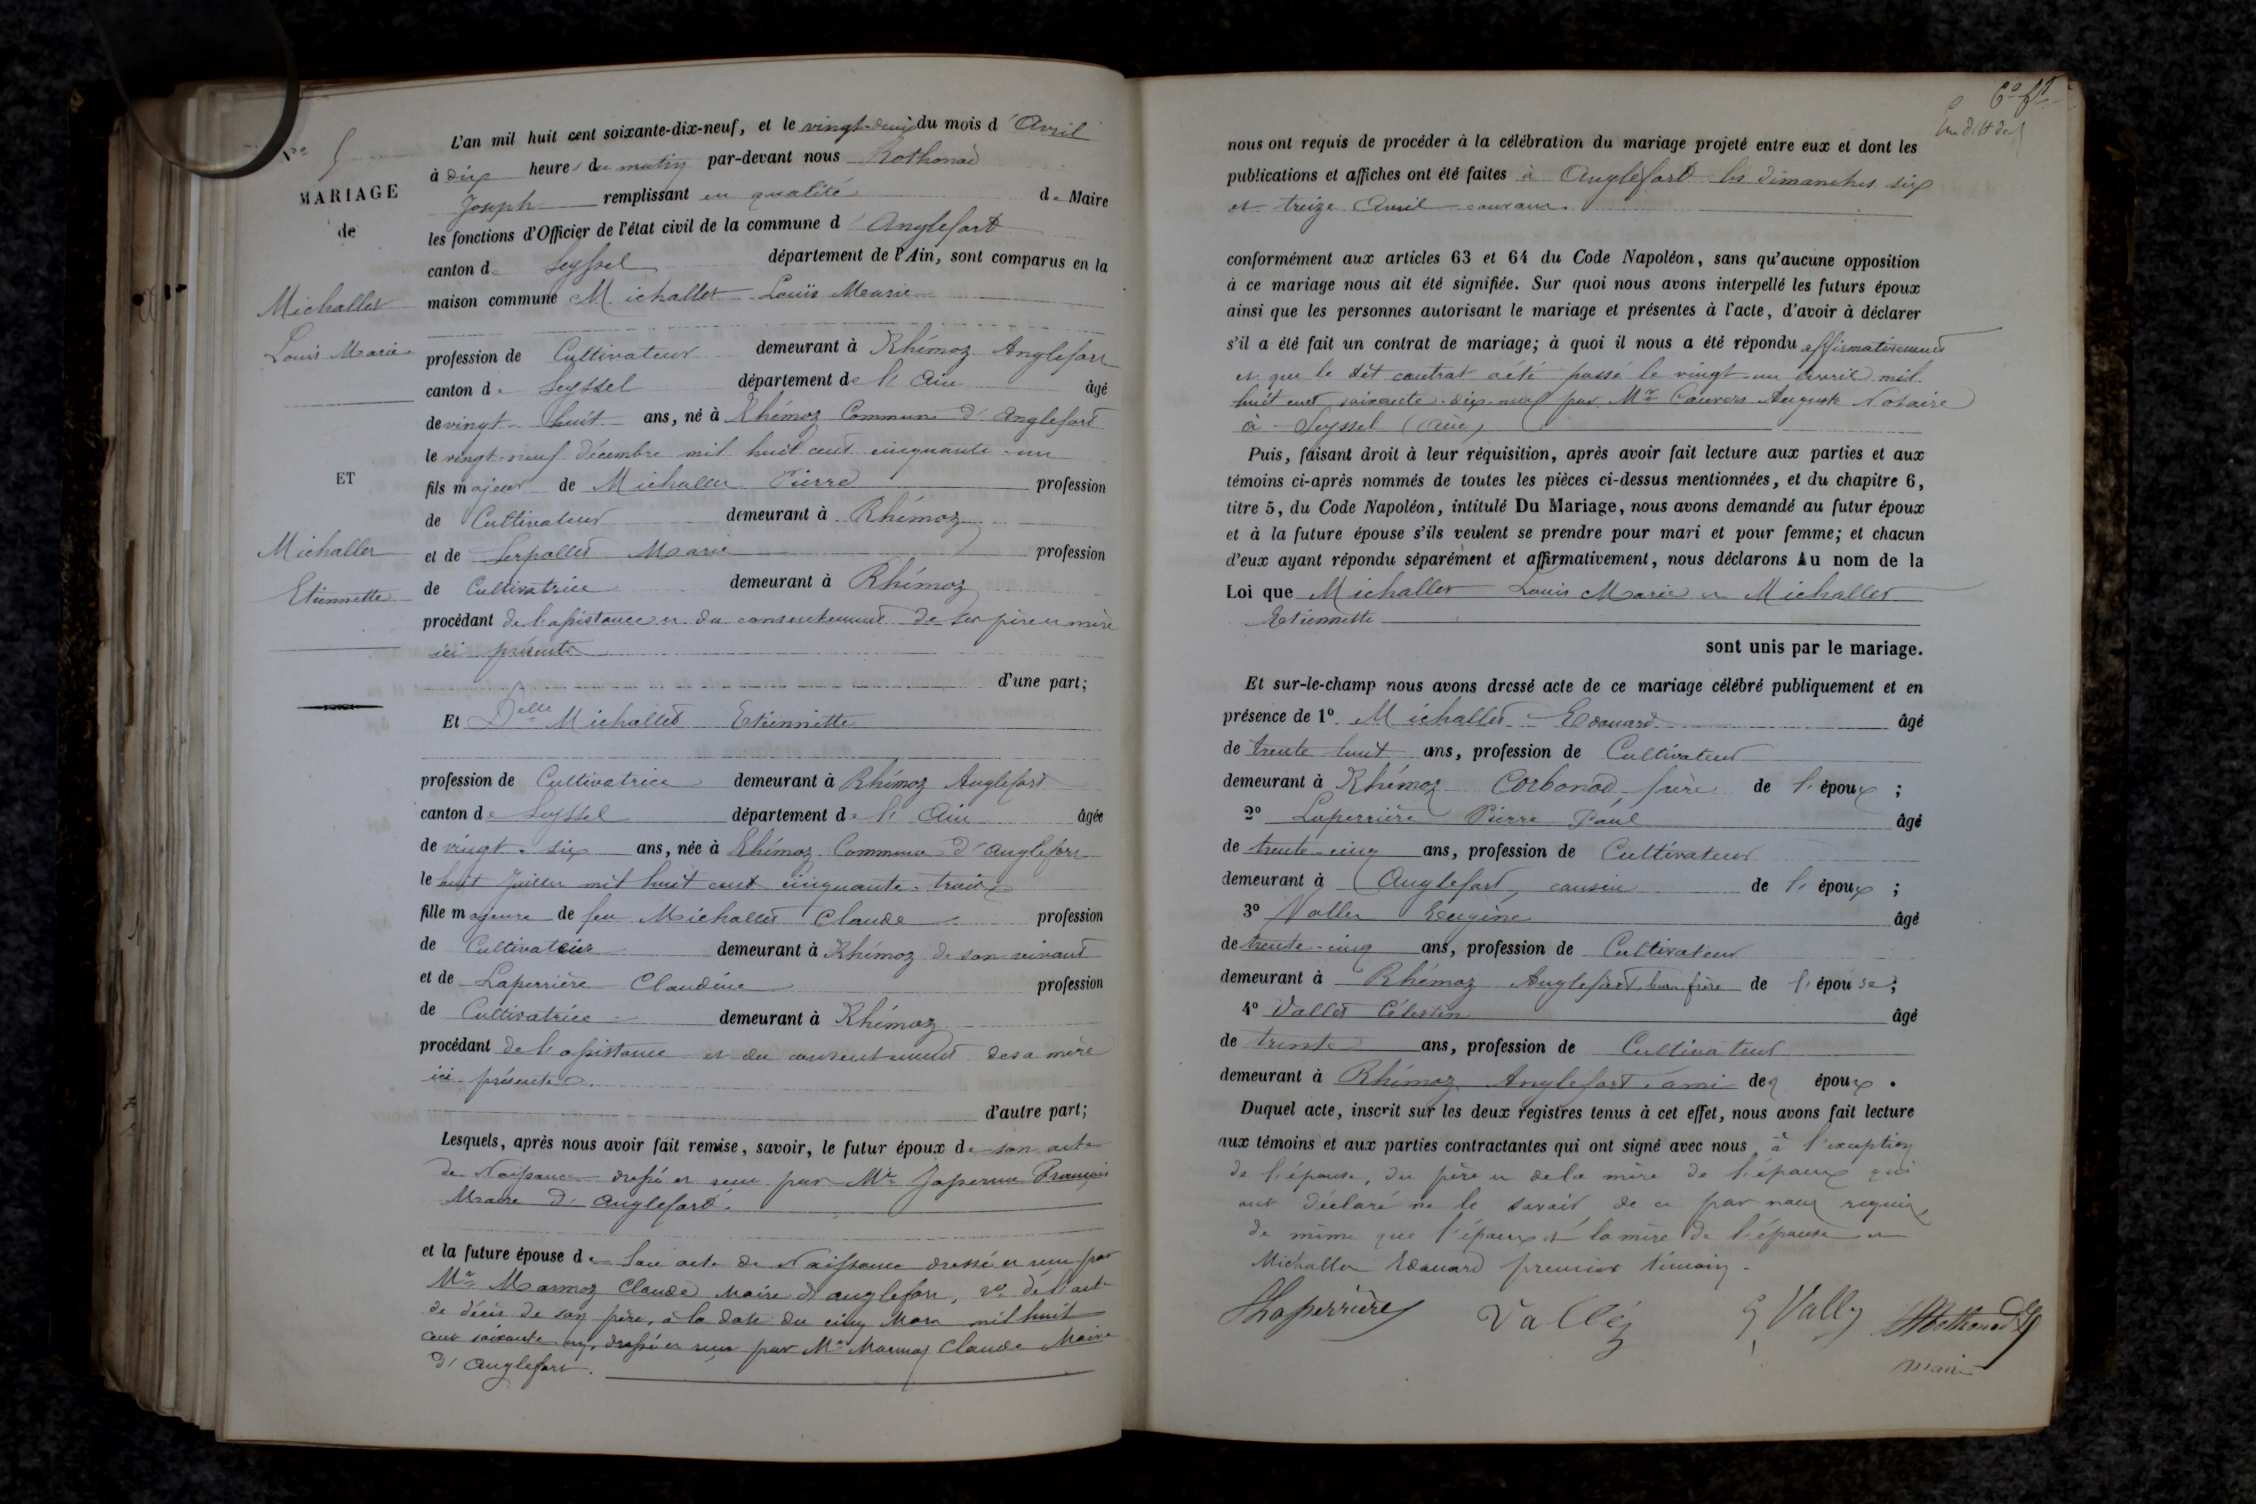 N° 5
MARIAGE
de
Michallet
Louis Marie
ET
Michallet
Etiennette
L'an mil huit cent soixante-dix-neuf, et le vingt-deux du mois d'Avril
à dix heures du matin par-devant nous Rothonod
Joseph remplissant en qualité de Maire
les fonctions d'Officier de l'état civil de la commune d'Anglefort
canton de Seyssel département de l'Ain, sont comparus en la
maison commune Michallet Louis Marie
profession de Cultivateur demeurant à Rhémoz Anglefort
canton de Seyssel département de l'Ain âgé
de vingt-huit ans, né à Rhémoz Commune d'Anglefort
le vingt-neuf décembre mil huit cent cinquante-un
fils majeur de Michallet Pierre profession
de Cultivateur demeurant à Rhémoz
et de Serpollet Marie profession
de Cultivatrice demeurant à Rhémoz
procédant de l'assistance et du consentement de ses père et mère
ici présents
d'une part;
Et Delle Michallet Etiennette
profession de Cultivatrice demeurant à Rhémoz Anglefort
canton de Seyssel département de l'Ain âgée
de vingt-six ans, née à Rhémoz Commune d'Anglefort
le huit Juillet mil huit cent cinquante-trois
fille majeure de feu Michallet Claude profession
de Cultivateur demeurant à Rhémoz de son vivant
et de Laperrière Claudine profession
de Cultivatrice demeurant à Rhémoz
procédant de l'assistance et du consentement de sa mère
ici présente.
d'autre part;
Lesquels, après nous avoir fait remise, savoir, le futur époux de son acte
de Naissance dressé et reçu par Mr François
Maire d'Anglefort.
et la future épouse de son acte de Naissance dressé et reçu par
Mr Marmoz Claude Maire d'Anglefort, 2° de l'acte
de décès de son père, à la date du cinq Mars mil huit
cent soixante dressé et reçu par Mr Marmoz Claude Maire
d'Anglefort.
nous ont requis de procéder à la célébration du mariage projeté entre eux et dont les
publications et affiches ont été faites à Anglefort les dimanches six
et treize Avril courant.
conformément aux articles 63 et 64 du Code Napoléon, sans qu'aucune opposition
à ce mariage nous ait été signifiée. Sur quoi nous avons interpellé les futurs époux
ainsi que les personnes autorisant le mariage et présentes à l'acte, d'avoir à déclarer
s'il a été fait un contrat de mariage; à quoi il nous a été répondu affirmativement
et que le dit contrat a été passé le vingt-un Avril mil
huit cent soixante-dix-neuf par Mr Auguste Notaire
à Seyssel (Ain)
Puis, faisant droit à leur réquisition, après avoir fait lecture aux parties et aux
témoins ci-après nommés de toutes les pièces ci-dessus mentionnées, et du chapitre 6,
titre 5, du Code Napoléon, intitulé Du Mariage, nous avons demandé au futur époux
et à la future épouse s'ils veulent se prendre pour mari et pour femme; et chacun
d'eux ayant répondu séparément et affirmativement, nous déclarons Au nom de la
Loi que Michallet Louis Marie et Michallet
Etiennette
sont unis par le mariage.
Et sur-le-champ nous avons dressé acte de ce mariage célébré publiquement et en
présence de 1° Michallet Edouard âgé
de trente huit ans, profession de Cultivateur
demeurant à Rhémoz Corbonod frère de l'époux;
2° Laperrière Pierre Paul âgé
de trente-cinq ans, profession de Cultivateur
demeurant à Anglefort, cousin de l'époux;
3° Vallet Eugène âgé
de trente-cinq ans, profession de Cultivateur
demeurant à Rhémoz Anglefort, beau frère de l'épouse;
4° Vallet Célestin âgé
de trente ans, profession de Cultivateur
demeurant à Rhémoz Anglefort, ami des époux.
Duquel acte, inscrit sur les deux registres tenus à cet effet, nous avons fait lecture
aux témoins et aux parties contractantes qui ont signé avec nous à l'exception
de l'épouse, du père et de la mère de l'époux qui
ont déclaré ne le savoir de ce par nous requis,
de même que l'époux et la mère de l'épouse et
Michallet Edouard premier témoin.
Laperrière Vallet E Vallet Rothonod
Maire